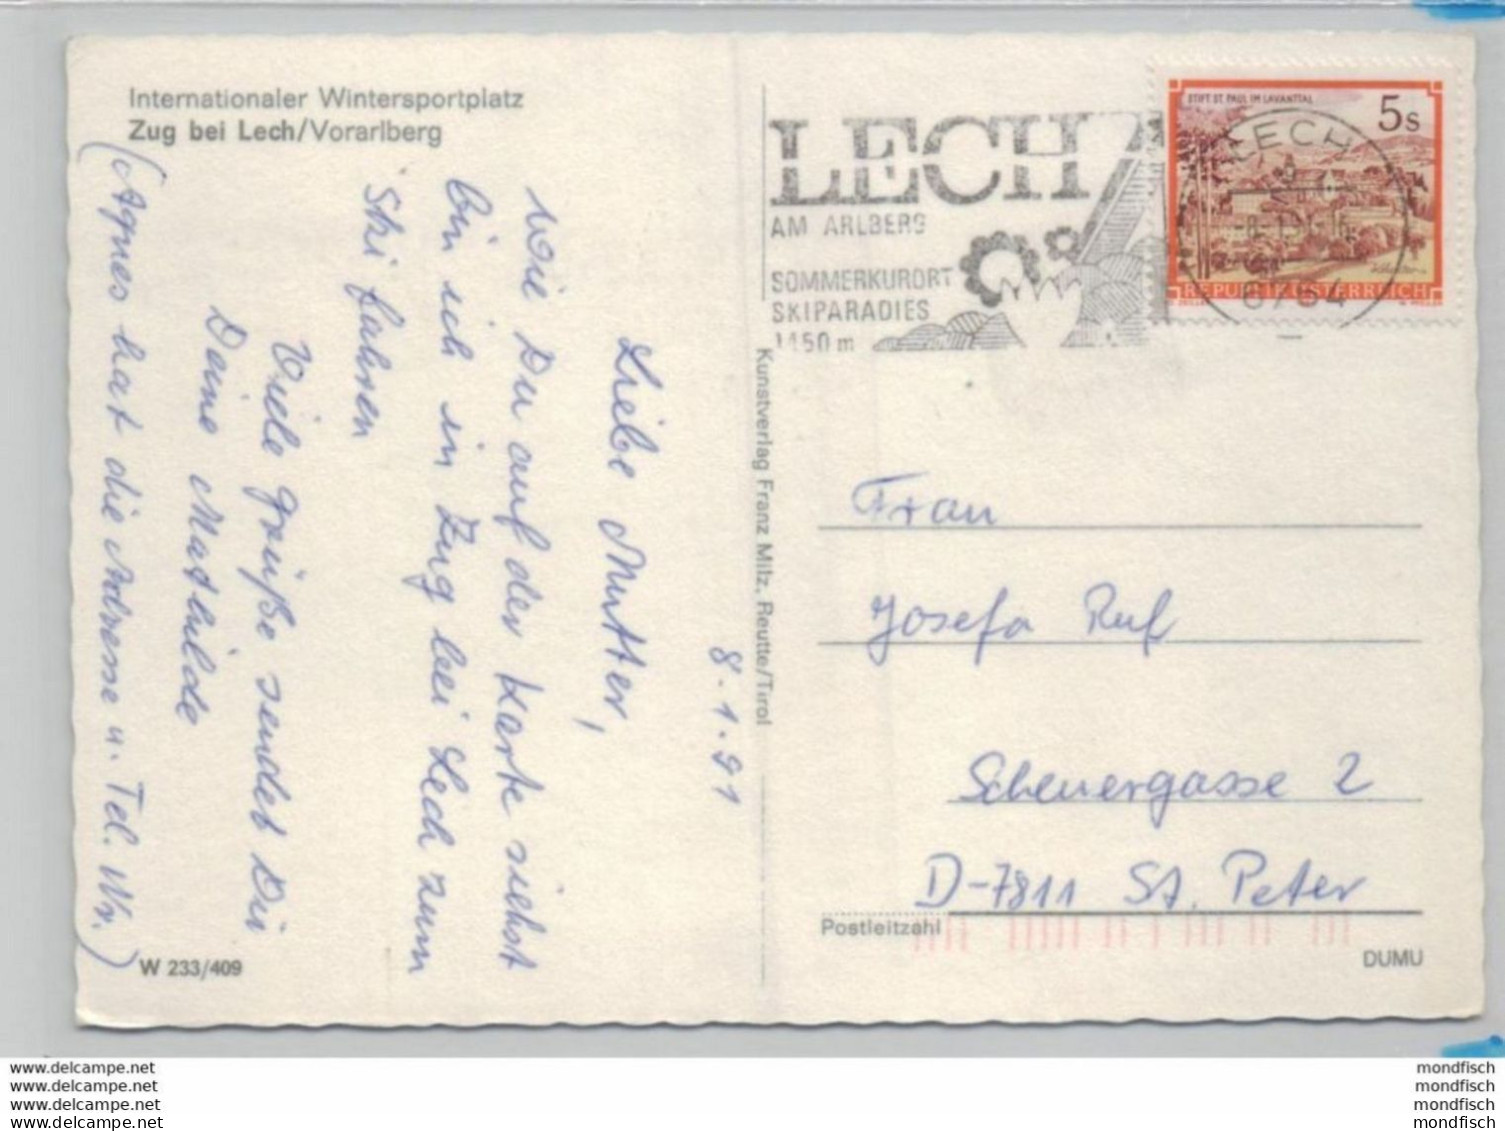 Internationaler Wintersportplatz
Zug bei Lech/Vorarlberg
8.1.91
Liebe Mutter,
wie Du auf der Karte siehst
bin ich in Zug bei Lech zum
Ski fahren
Viele Grüße sendet Dir
Deine Mathilde
(Agnes hat die Adresse u. Tel. Nr.)
W 233/409
Kunstverlag Franz Milz, Reutte/Tirol
LECH
AM ARLBERG
SOMMERKURORT
SKIPARADIES
1450 m
STIFT ST. PAUL IM LAVANTTAL
5 S
REPUBLIK ÖSTERREICH
LECH
6764
Frau
Josefa Ruf
Scheuergasse 2
D-7811 St. Peter
Postleitzahl
DUMU
www.delcampe.net
www.delcampe.net
www.delcampe.net
www.delcampe.net
mondfisch
mondfisch
mondfisch
mondfisch